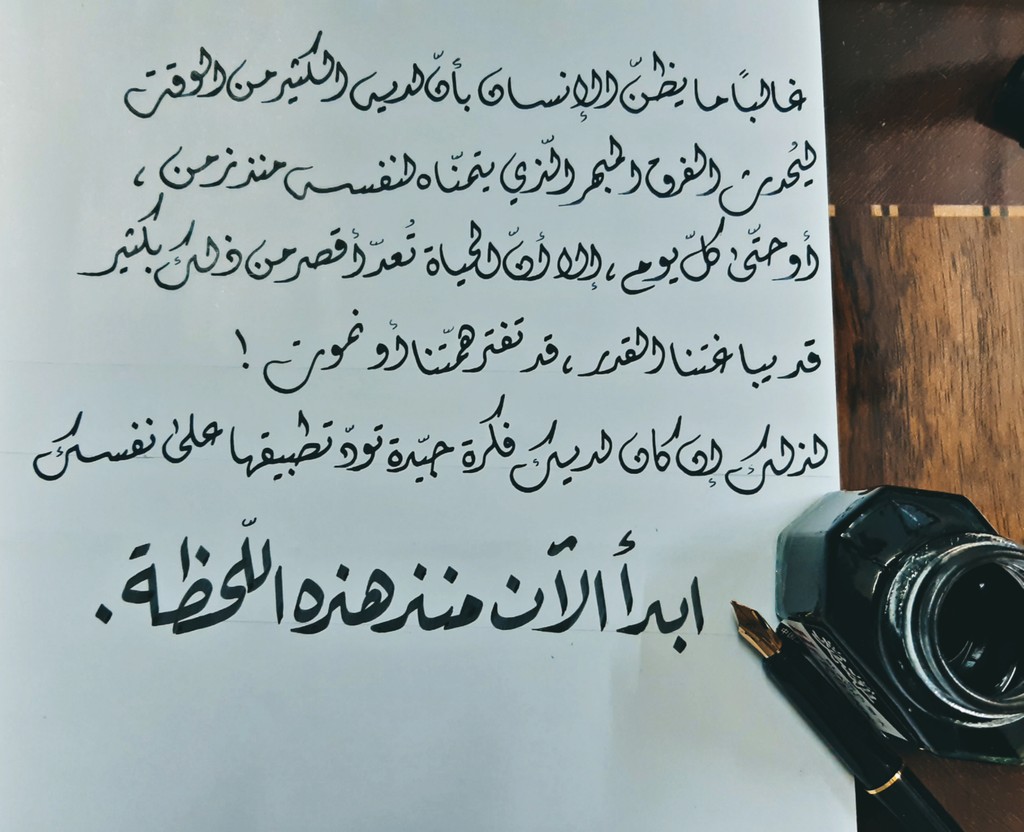 غالبًا ما يظنّ الإنسان بأنّ لديه الكثير من الوقت
ليُحدث الفرق المبهر الّذي يتمنّاه لنفسه منذ زمن ،
أو حتّىٰ كلّ يوم ، إلا أنّ الحياة تُعدّ أقصر من ذلك بكثير
قد يباغتنا القدر ، قد تفتر همّتنا أو نموت !
لذلك إن كان لديك فكرة جيّدة تودّ تطبيقها علىٰ نفسك
ابدأ الآن منذ هذه اللّحظة .